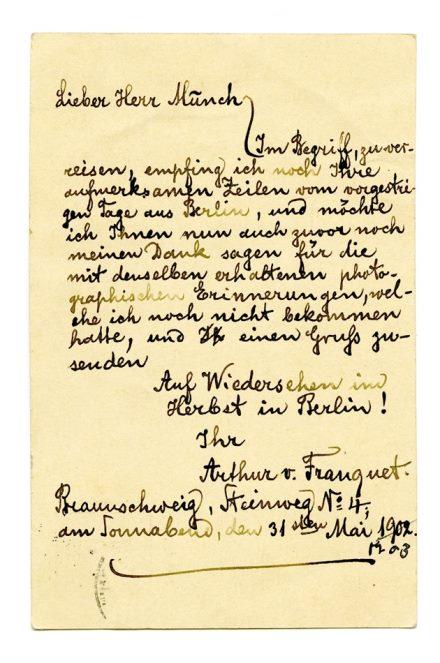 Lieber Herr Munch
Im Begriff, zu ver-
reisen, empfing ich noch Ihre
aufmerksamen Zeilen vom vorgestri-
gen Tage aus Berlin, und möchte
ich Ihnen nun auch zuvor noch
meinen Dank sagen für die
mit denselben erhaltenen photo-
graphischen Erinnerungen, wel-
che ich noch nicht bekommen
hatte, und einen Gruß zu-
senden
Auf Wiedersehen im
Herbst in Berlin!
Ihr
Arthur v. Franquet.
Braunschweig, Steinweg No 4,
am Sonnabend, den 31sten Mai 1902.
1903